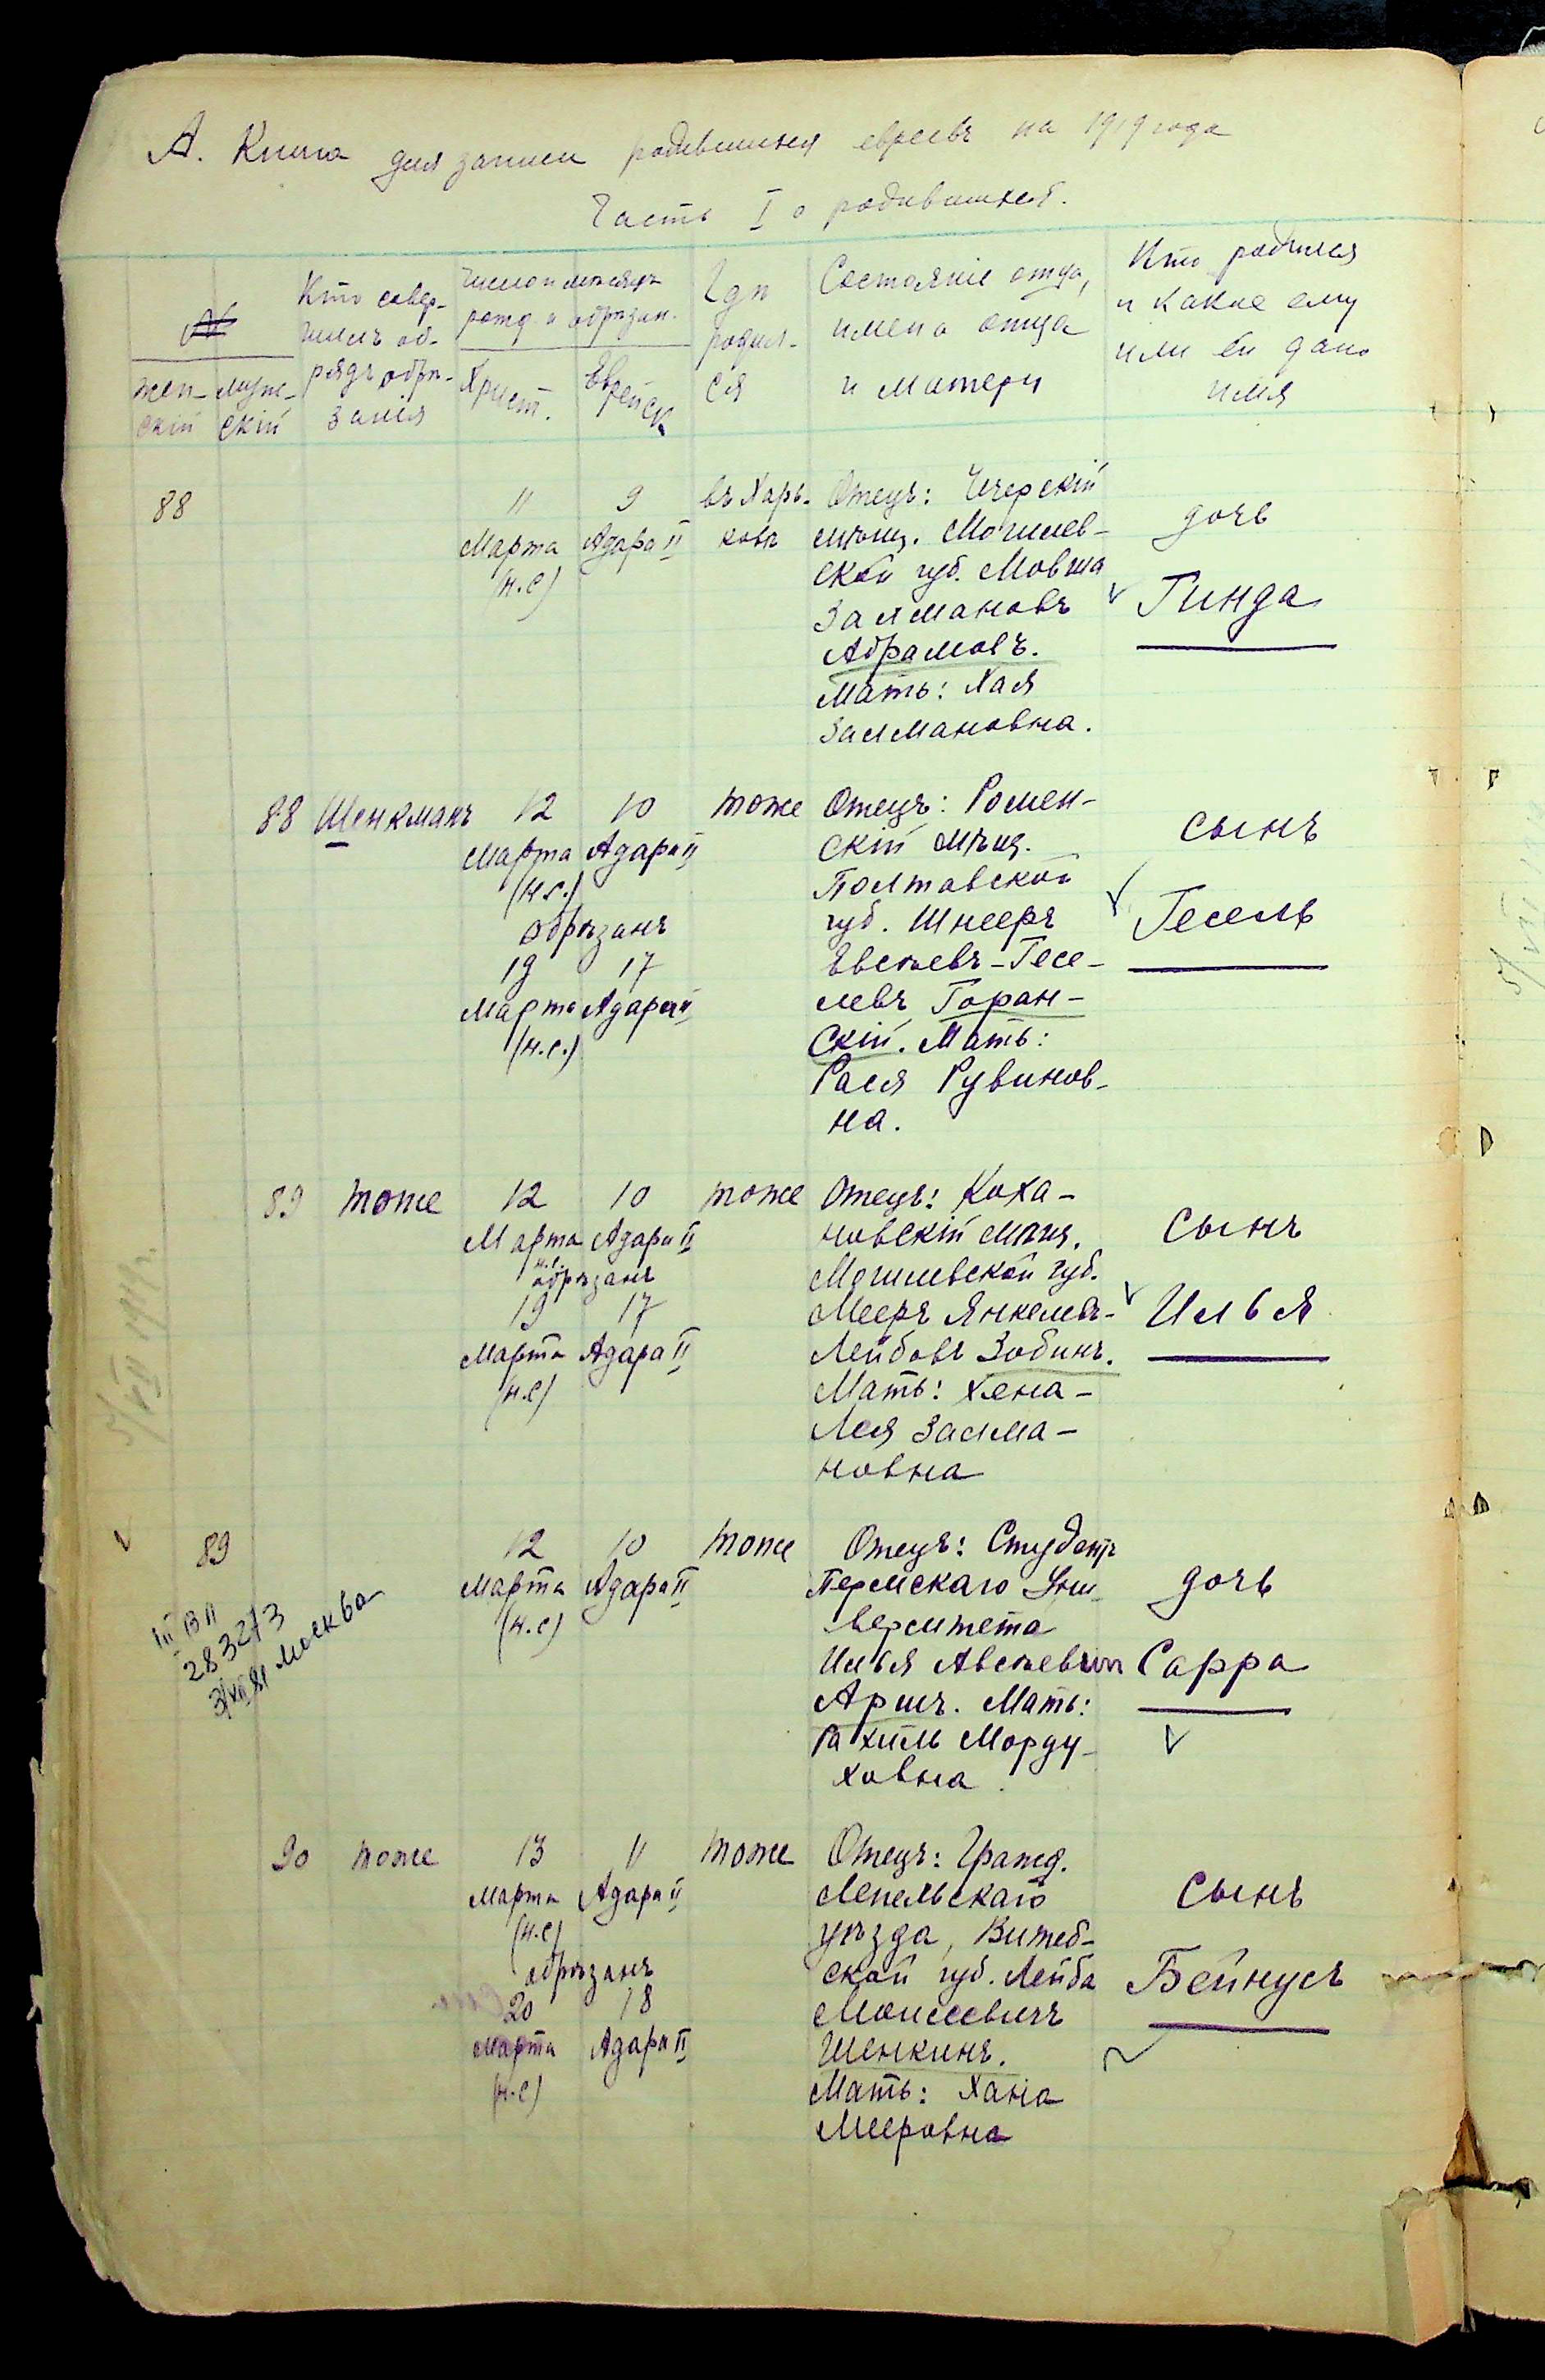 А. Книга для записи родившихся евреевъ на 1919 года
Часть I о родившихся.
№
жен-
скій
муже-
скій
Кто совер-
шилъ об-
рядъ обрѣ-
занія
Число и мѣсяцъ
рожд. и обрѣзан.
Христ.
Еврейск.
Гдѣ
родил-
ся
Состояніе отца,
имена отца
и матери
Кто родился
и какое ему
или ей дано
имя
88
11
Марта
(н.с)
9
Адара II
въ Харь-
ковѣ
Отецъ: Чечерскій
мѣщ. Могилев-
ской губ. Мовша
Залмановъ
Абрамовъ.
Мать: Хая
Залмановна.
дочь
Гинда
88
Шенкманъ
12
Марта
(н.с.)
10
Адара II
обрѣзанъ
19
Марта
(н.с.)
17
Адара II
тоже
Отецъ: Ромен-
скій мѣщ.
Полтавской
губ. Шнееръ
Евсѣевъ-Гесе-
левъ Горан-
скій. Мать:
Рася Рувинов-
на.
сынъ
Гесель
89
тоже
12
Марта
н.с.
10
Адара II
обрѣзанъ
19
Марта
(н.с)
17
Адара II
тоже
Отецъ: Коха-
новскій мѣщ.
Могилевской губ.
Мееръ Янкелевъ-
Лейбовъ Зобинъ.
Мать: Хена-
Лея Залма-
новна
сынъ
Илья
89
III ВЛ
283273
Москва
12
Марта
(н.с)
10
Адара II
тоже
Отецъ: Студентъ
Пермскаго Уни-
верситета
Илья Авсѣевич
Аршъ. Мать:
Рахиль Морду-
ховна
дочь
Сарра
90
тоже
13
Марта
(н.с)
11
Адара II
обрѣзанъ
20
Марта
(н.с)
18
Адара II
тоже
Отецъ: Гражд.
Лепельскаго
уѣзда, Витеб-
ской губ. Лейба
Моисеевичъ
Шенкинъ.
Мать: Хана
Мееровна
сынъ
Бейнусъ